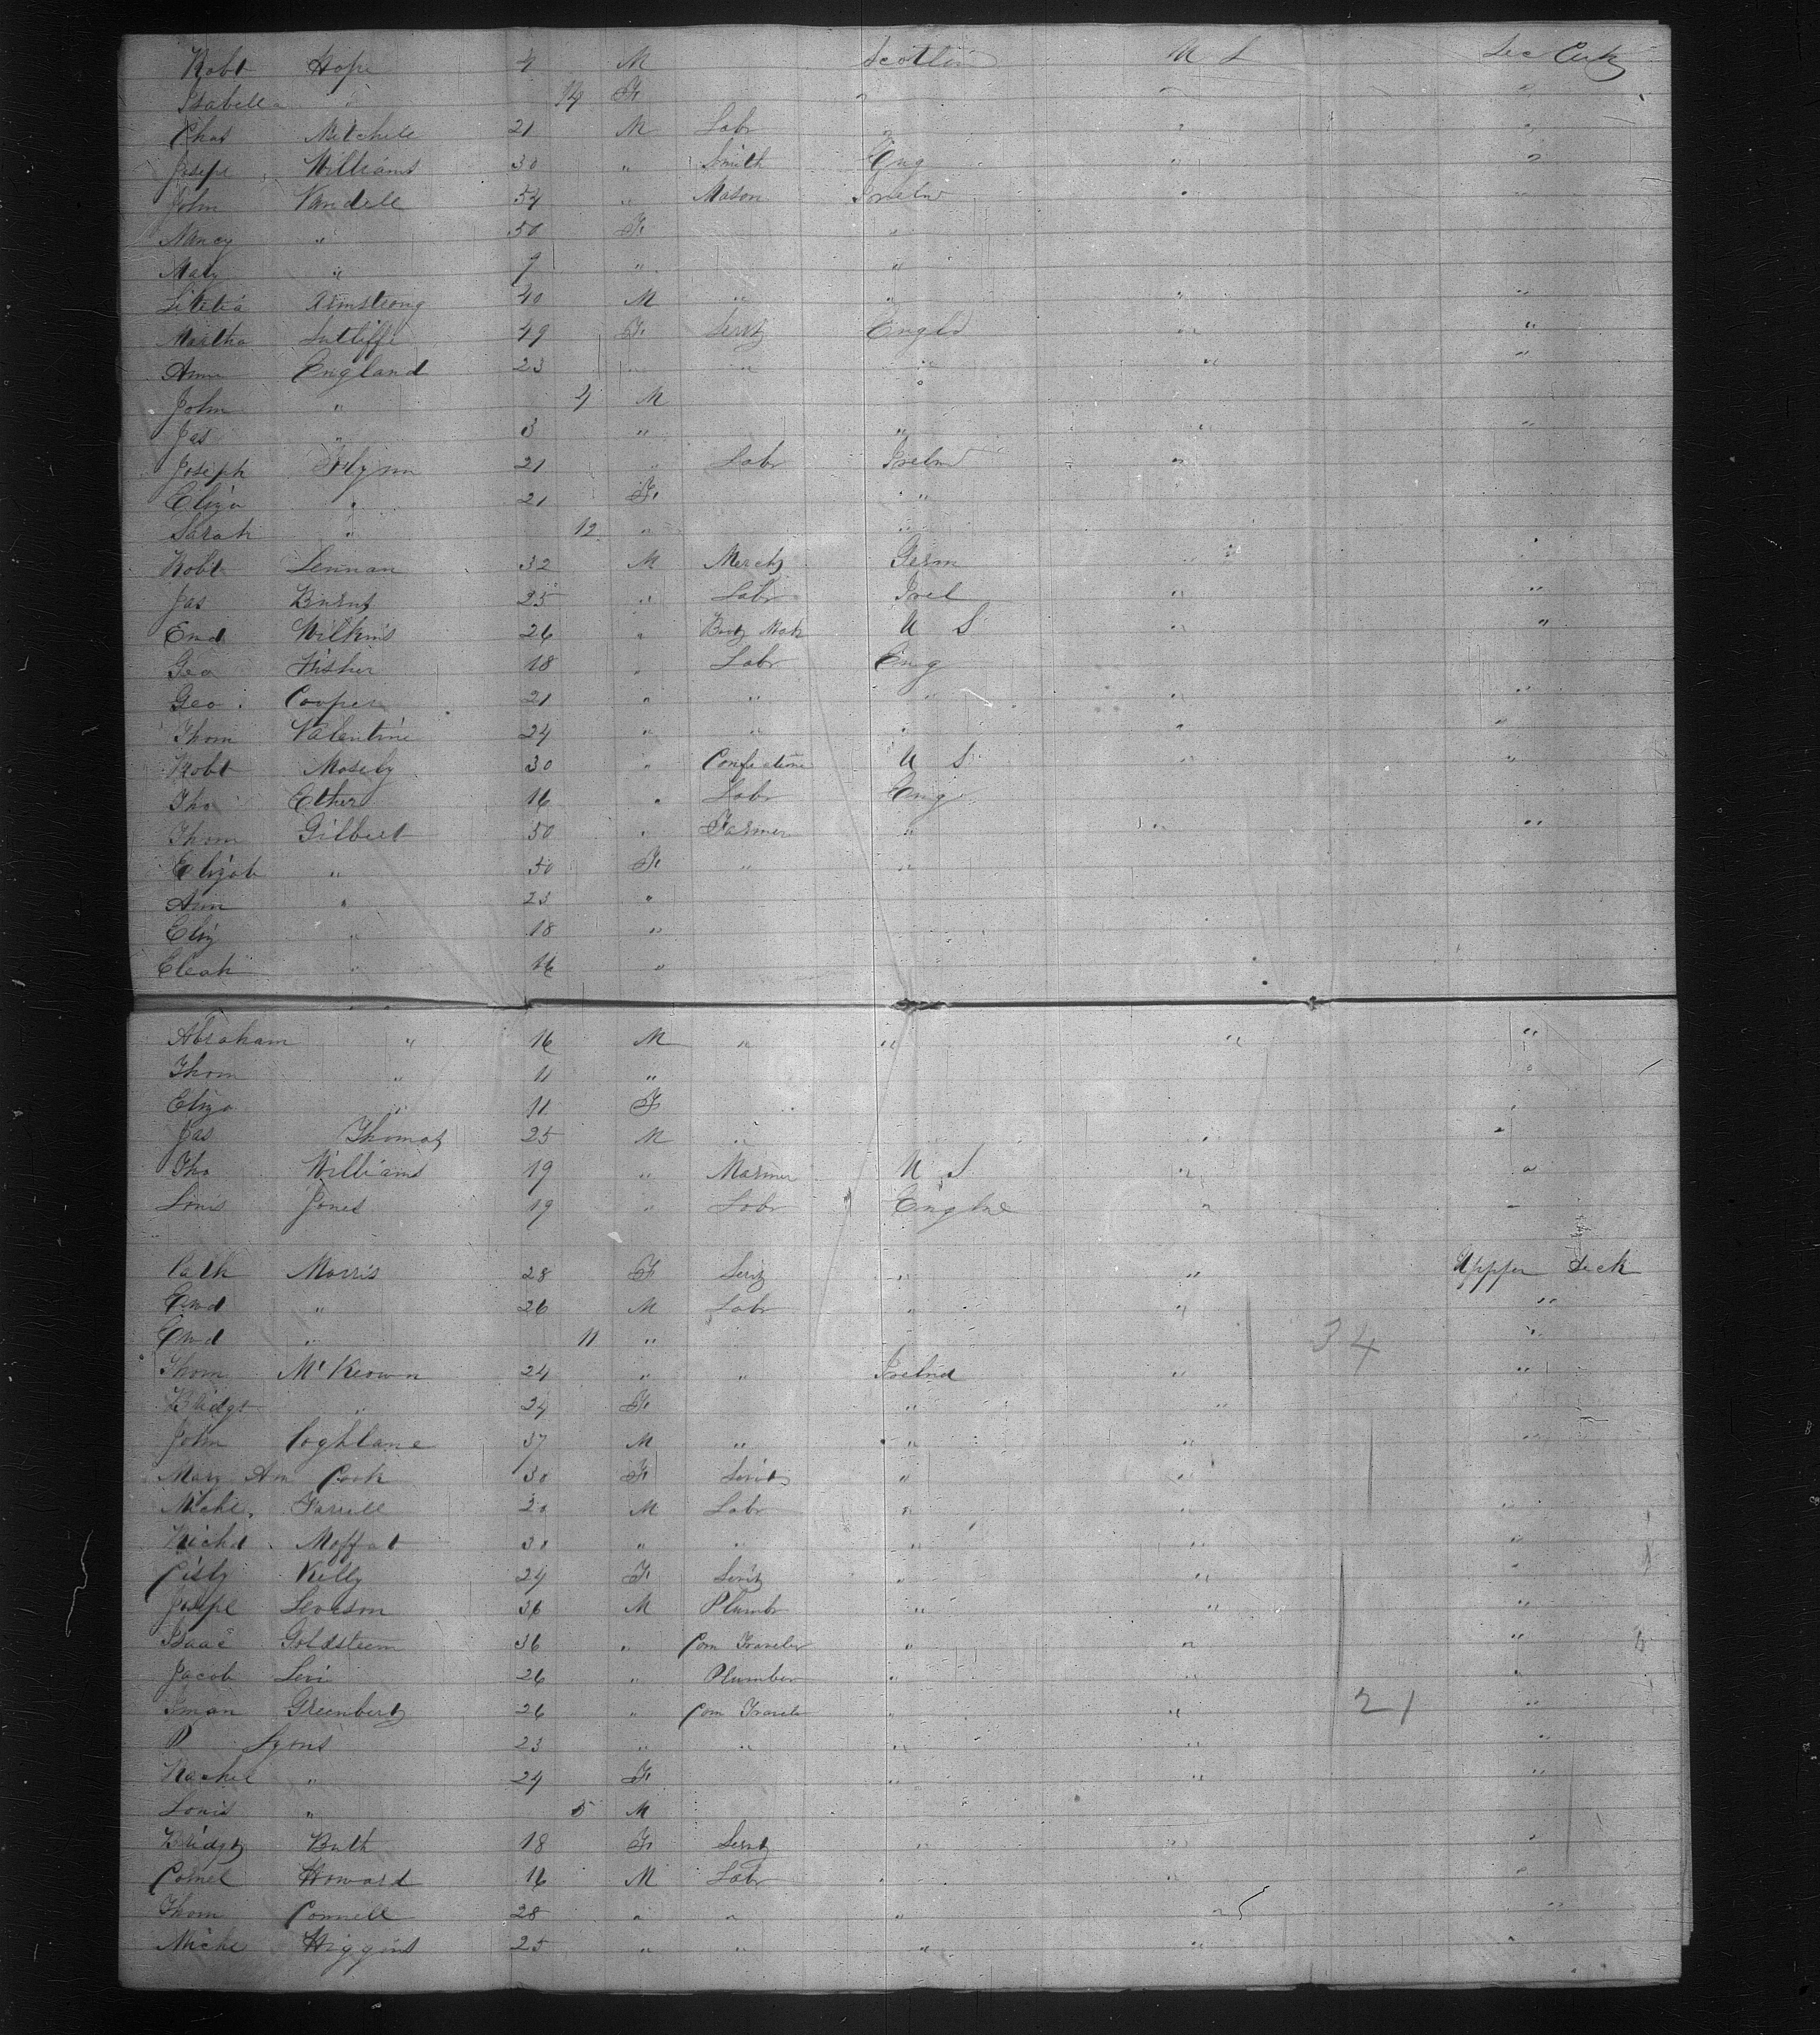 Robt Hope 4 M Scotlan U S
Isabella " 14 F " " "
Chas Mitchell 21 M Labr " " "
Josepe Williams 30 " Smith Eng " "
John Vandell 54 " Mason Irelnd " "
Nancy " 50 F "
Mary " 9 " "
Letetia Armstrong 40 M " " " "
Martha Sutliffe 49 F Servt Engld " "
Ann England 23 " " " " "
John " 4 M "
Jas " 3 " " " "
Joseph Flynn 21 " Labr Irelnd "
Eliza " 21 F "
Sarah " 12 " "
Robt Lennan 32 M Mercht Germ " "
Jas 25 " Labr Irel " "
Emd Wilkins 26 " U S " "
Geo Fisher 18 " Labr Eng
Geo Cooper 21 " " " " "
Thom Valentine 24 " " " " "
Robt Mosely 30 " Confectine U S " "
Tho Ether 16 " Labr Eng
Thom Gilbert 50 " Farmer " " "
Elizab " 50 F " "
Ann " 23 "
Eliz " 18 "
" 16 "
Abraham " 16 M " " " "
Thom " 11 " "
Eliza " 11 F "
Jas Thomas 25 M " " "
Tho Williams 19 " Mariner U S " "
Louis Jones 19 " Labr " "
Cath Morris 28 F Servt " " Uppper Deck
Emd " 26 M Labr " " "
Emd " 11 " 34 "
Thom McKeown 24 " " Irelnd " "
Bridgt " 24 F " "
John Coghlane 37 M " " " "
Mary An Cook 30 F Servt " "
Michl Farrell 20 M Labr " " "
Richd Moffat 30 " " " " "
Kelly 24 F Servt " " "
Josepe Leveson 36 M Plumbr " " "
Isaac Goldsteem 36 " Com Traveler " " "
Jacob Levi 26 " Plumber " " "
Iman Greenbertz 26 " Com Travele " " 21 "
P Lyons 23 " " " " "
Rachel " 24 F " " "
Louis " 5 M
Bridgt Buth 18 F Servt " " "
Cornel Howard 16 M Labr " " "
Thom Connell 28 " " " " "
Michl Higgins 25 " " " " "